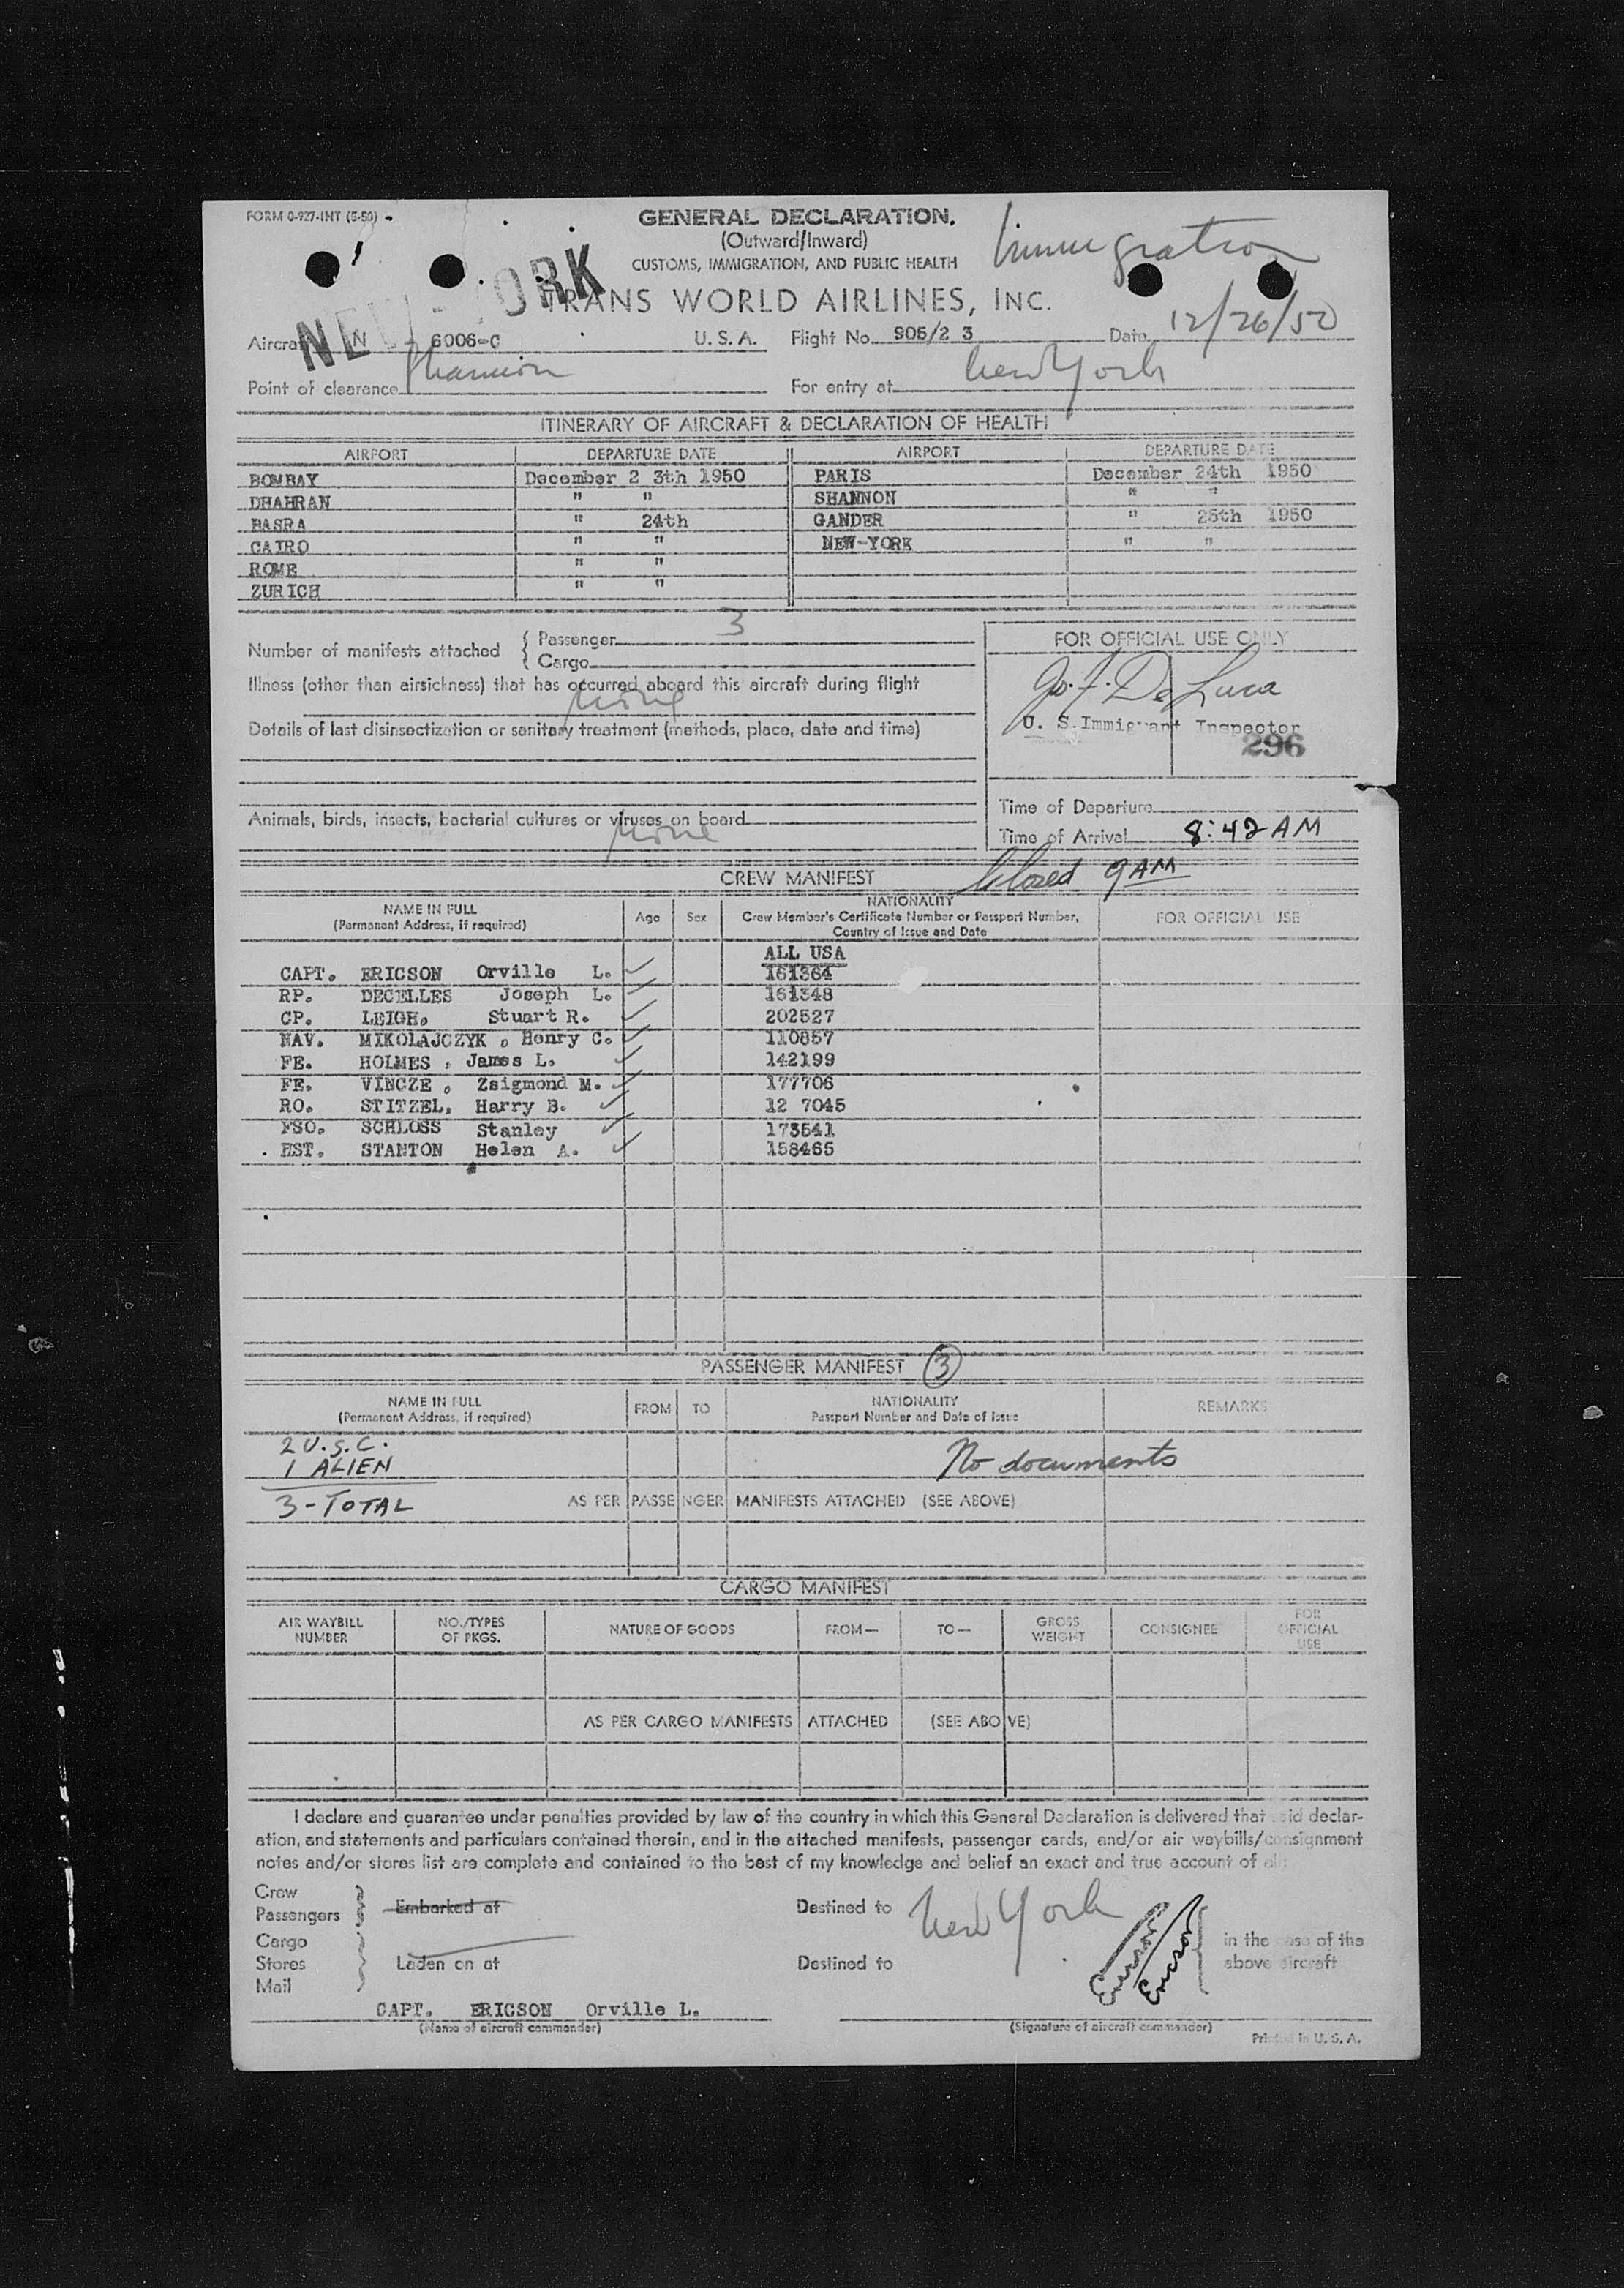 FORM 0-927-INT (5-50)
GENERAL DECLARATION.
(Outward/Inward)
Immigration
CUSTOMS, IMMIGRATION, AND PUBLIC HEALTH
NEW-YORK
TRANS WORLD AIRLINES, INC.
Aircraft N 6006-C U. S. A. Flight No. 905/2 3 Date 12/26/50
Point of clearance Shannon For entry at New York
ITINERARY OF AIRCRAFT & DECLARATION OF HEALTH
AIRPORT DEPARTURE DATE AIRPORT DEPARTURE DATE
BOMBAY December 2 3th 1950 PARIS December 24th 1950
DHAHRAN " " SHANNON " "
BASRA " 24th GANDER " 25th 1950
CAIRO " " NEW-YORK " "
ROME " "
ZURICH " "
Number of manifests attached { Passenger 3
{ Cargo
FOR OFFICIAL USE ONLY
Illness (other than airsickness) that has occurred aboard this aircraft during flight
None
Jo. F. De Luca
U. S. Immigrant Inspector
296
Details of last disinsectization or sanitary treatment (methods, place, date and time)
Animals, birds, insects, bacterial cultures or viruses on board
None
Time of Departure
Time of Arrival 8:42 AM
Closed 9 AM
CREW MANIFEST
NAME IN FULL
(Permanent Address, if required) Age Sex NATIONALITY
Crew Member's Certificate Number or Passport Number,
Country of Issue and Date FOR OFFICIAL USE
ALL USA
CAPT. ERICSON Orville L. ✓ 161364
RP. DECELLES Joseph L. ✓ 161348
CP. LEIGH, Stuart R. ✓ 202527
NAV. MIKOLAJCZYK , Henry C. ✓ 110857
FE. HOLMES , James L. ✓ 142199
FE. VINCZE , Zsigmond M. ✓ 177706
RO. STITZEL, Harry B. ✓ 12 7045
FSO. SCHLOSS Stanley ✓ 173541
HST. STANTON Helen A. ✓ 158465
PASSENGER MANIFEST 3
NAME IN FULL
(Permanent Address, if required) FROM TO NATIONALITY
Passport Number and Date of Issue REMARKS
2 U.S.C.
1 ALIEN No documents
3-TOTAL AS PER PASSENGER MANIFESTS ATTACHED (SEE ABOVE)
CARGO MANIFEST
AIR WAYBILL
NUMBER NO./TYPES
OF PKGS. NATURE OF GOODS FROM— TO— GROSS
WEIGHT CONSIGNEE FOR
OFFICIAL
USE
AS PER CARGO MANIFESTS ATTACHED (SEE ABOVE)
I declare and guarantee under penalties provided by law of the country in which this General Declaration is delivered that said declar-
ation, and statements and particulars contained therein, and in the attached manifests, passenger cards, and/or air waybills/consignment
notes and/or stores list are complete and contained to the best of my knowledge and belief an exact and true account of all:
Crew
Passengers } Embarked at Destined to New York
Cargo
Stores } Laden on at Destined to
Mail
Ericson
Ericson
in the case of the
above aircraft
CAPT. ERICSON Orville L.
(Name of aircraft commander) (Signature of aircraft commander)
Printed in U. S. A.